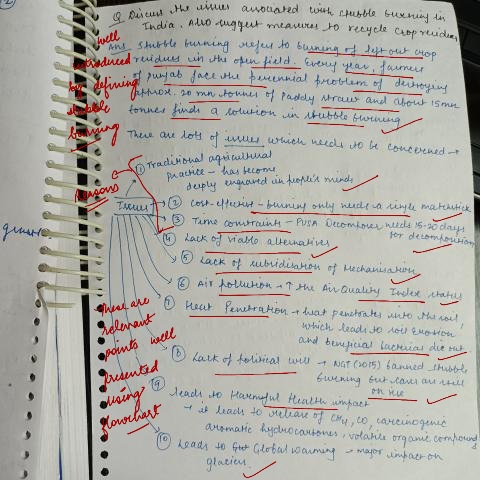 Q Discuss the issues associated with stubble burning in
India. Also suggest measures to recycle crop residues
well
introduced
by defining
stubble
burning
Ans Stubble burning refers to burning of left out crop
residues in the open field. Every year, farmers
of Punjab face the perennial problem of destroying
approx. 20 mn tonnes of Paddy straw and about 15 mn
tonnes finds a solution in stubble burning
There are lots of issues which needs to be concerned →
Reasons
Issues
① Traditional agricultural
practice - has become
deeply engraved in people's minds
② Cost-effective - burning only needs a single matchstick
③ Time constraints - PUSA Decomposer needs 15-20 days
for decomposition
④ Lack of viable alternatives
⑤ Lack of subsidisation of Mechanisation
⑥ Air pollution → ↑ the Air Quality Index states
⑦ Heat Penetration → heat penetrates into the soil,
which leads to soil erosion
and beneficial bacterias die out
These are
relevant
points well
presented
using
flowchart
⑧ Lack of political will → NGT (2015) banned stubble
burning but cases are still
on rise
⑨ leads to Harmful Health impact
→ it leads to release of CH4, CO, carcinogenic
aromatic hydrocarbons, volatile organic compound
⑩ Leads to Global warming → major impact on
glaciers